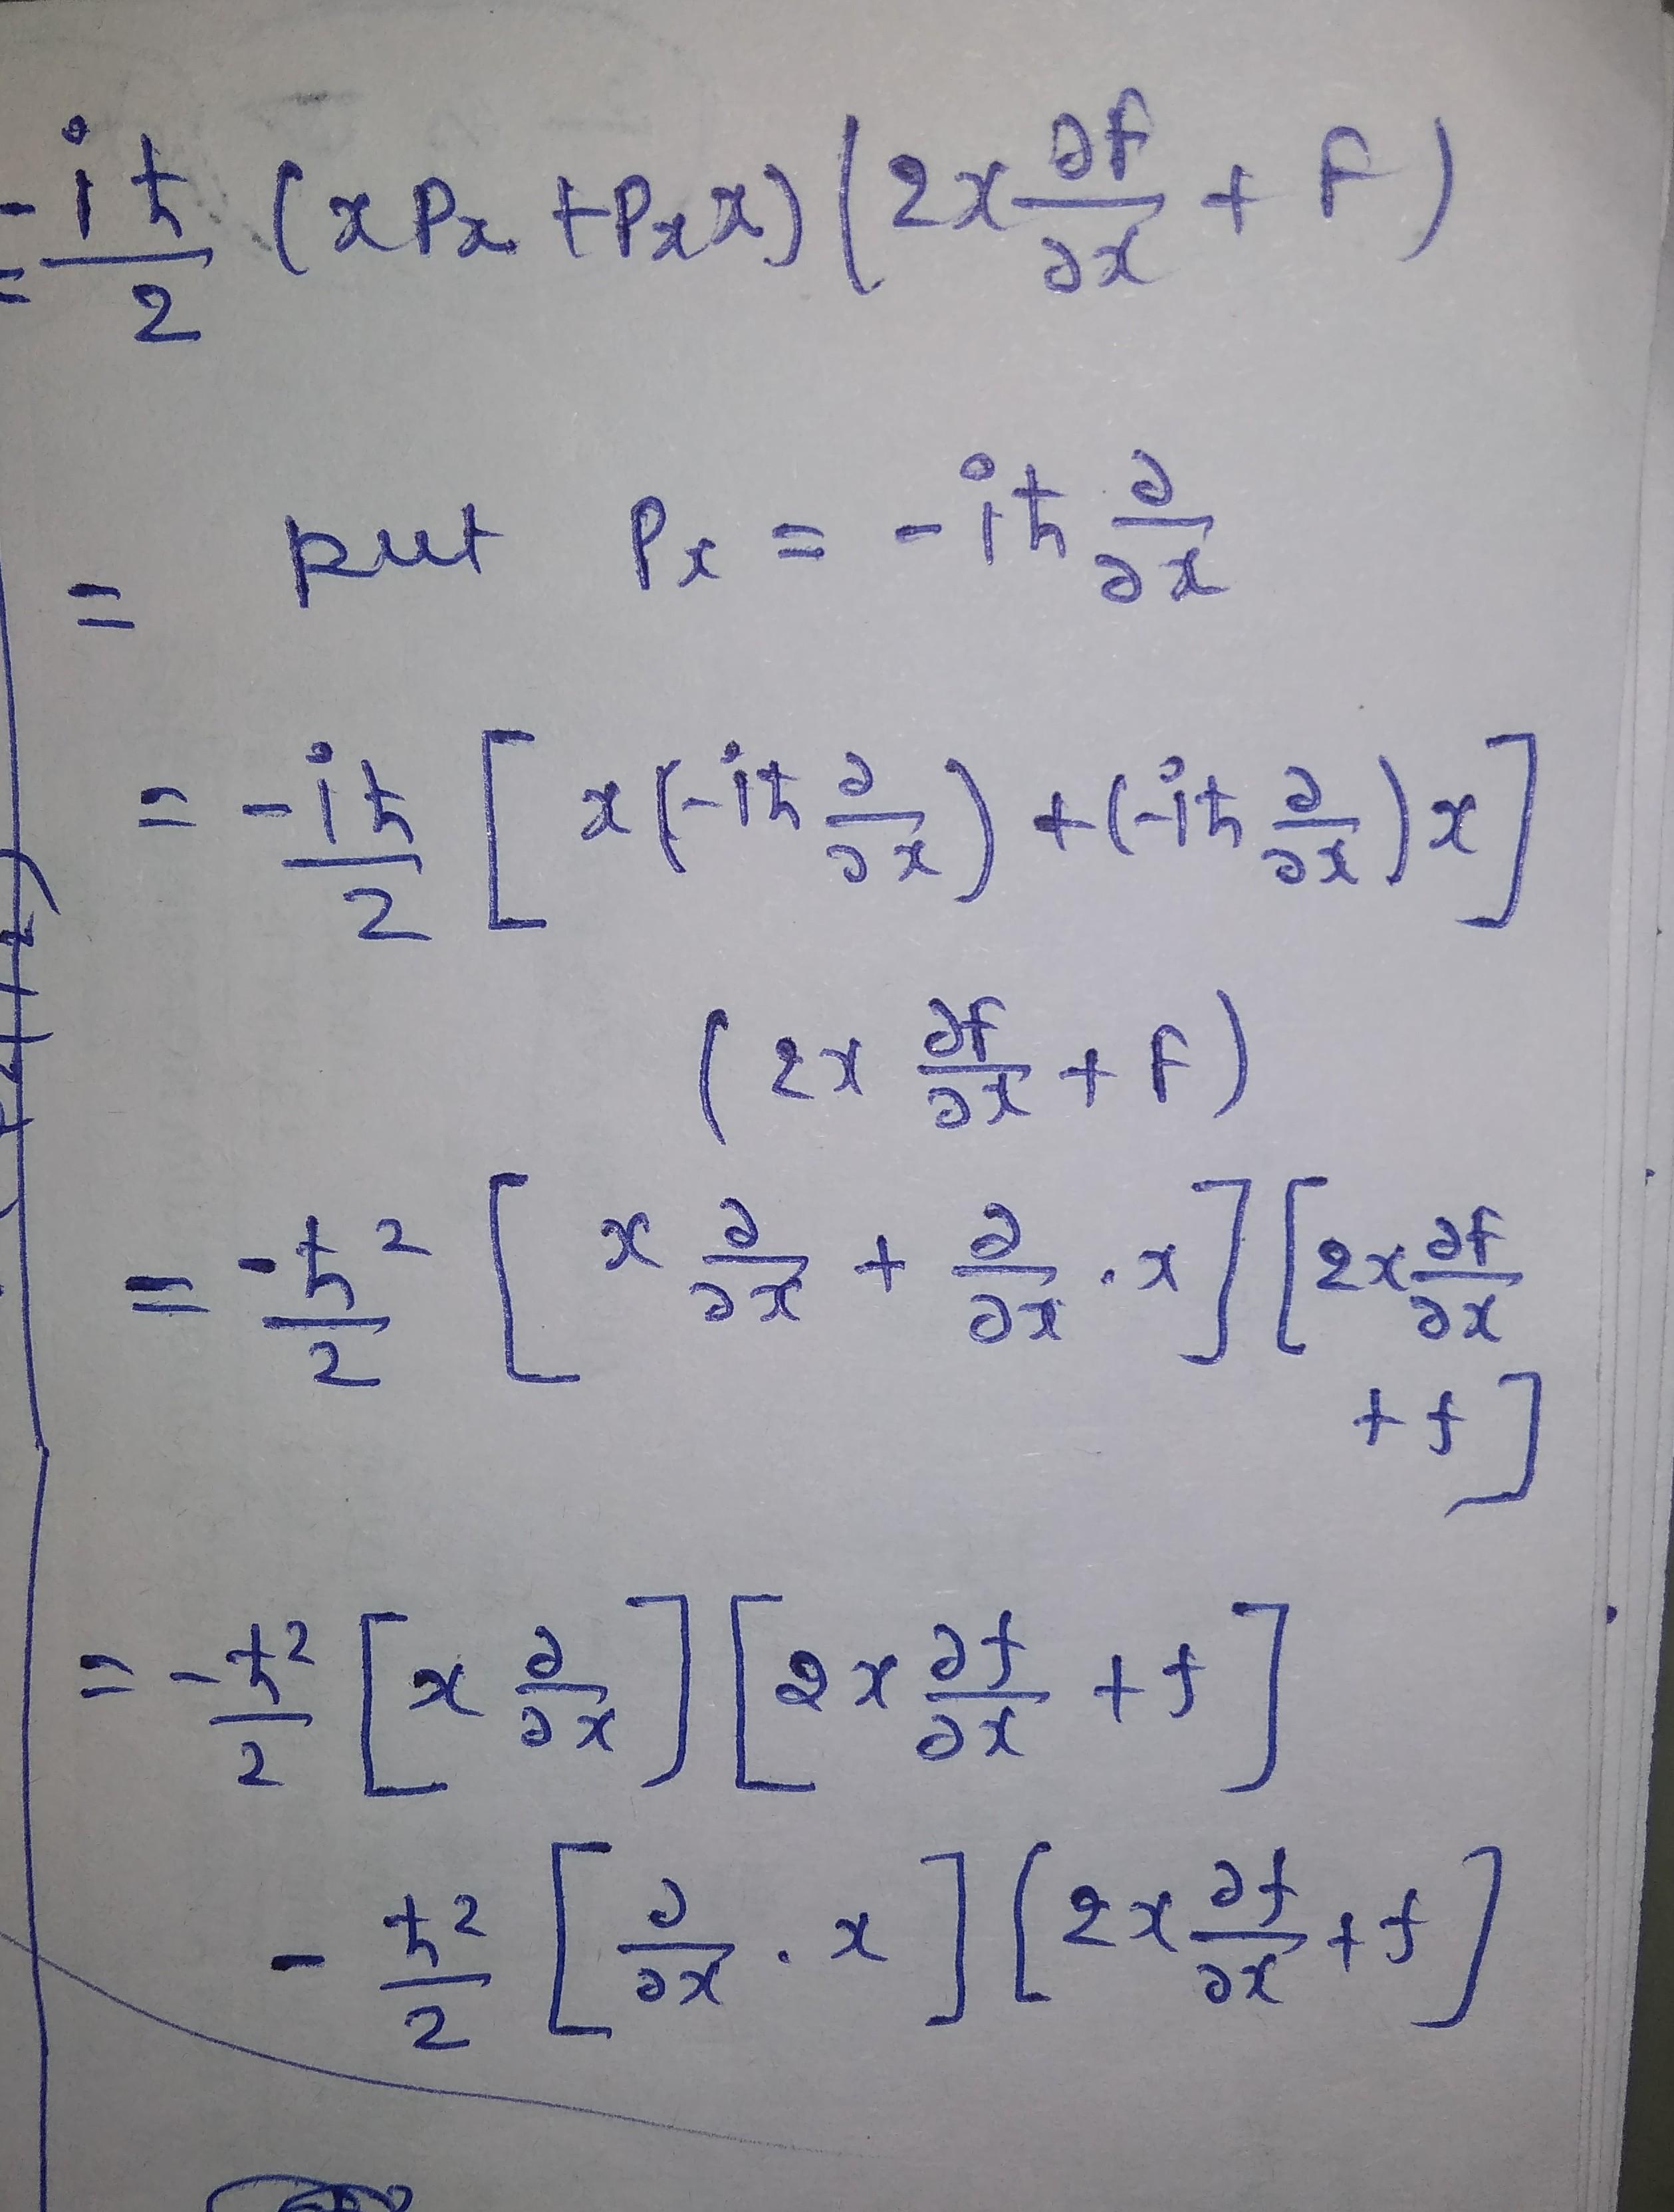 = -iħ/2 (x Px + Px x) (2x ∂f/∂x + f)
= put Px = -iħ ∂/∂x
= -iħ/2 [x(-iħ ∂/∂x) + (-iħ ∂/∂x)x]
(2x ∂f/∂x + f)
= -ħ²/2 [x ∂/∂x + ∂/∂x . x] [2x ∂f/∂x
+ f]
= -ħ²/2 [x ∂/∂x] [2x ∂f/∂x + f]
- ħ²/2 [∂/∂x . x] [2x ∂f/∂x + f]